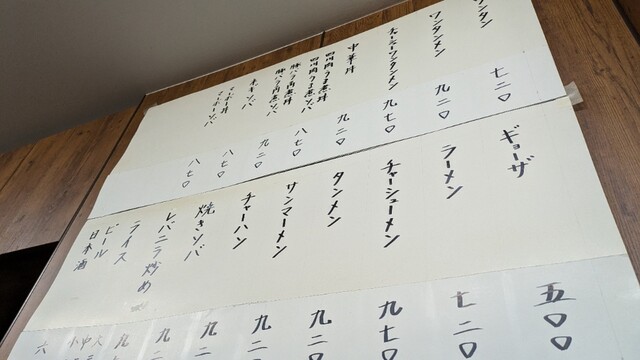 ワンタン
七二〇
ワンタンメン
九二〇
チャーシューワンタンメン
九七〇
中華丼
九二〇
四川肉うま煮丼
四川肉うま煮ソバ
八七〇
豚バラ角煮丼
豚バラ角煮ソバ
九二〇
八七〇
八七〇
ギョーザ
五〇〇
ラーメン
七二〇
チャーシューメン
九七〇
タンメン
九二〇
サンマーメン
九二〇
チャーハン
九二
焼きソバ
九二
レバニラ炒め
九二
ライス
ビール
日本酒
大
中
小
六